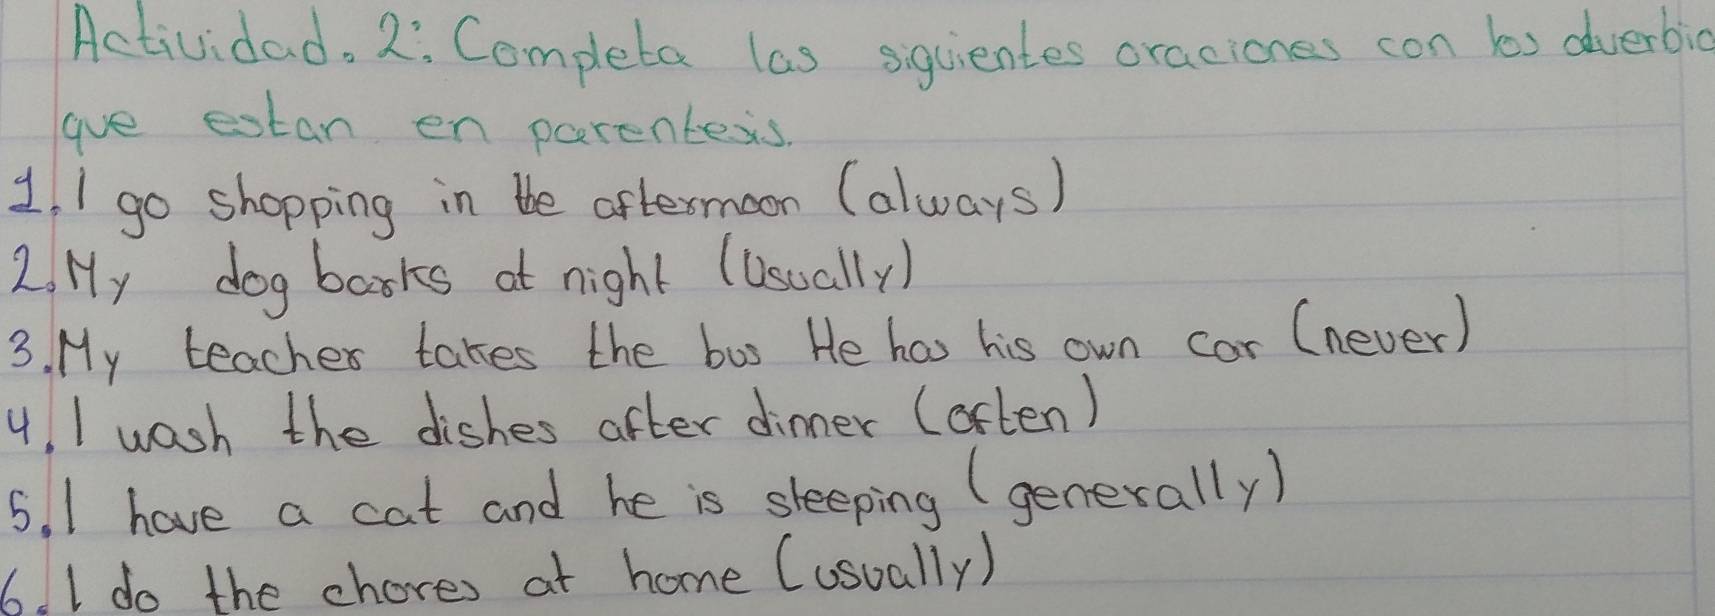 Actividad. 2: Completa las siguientes oraciones con los adverbio
que estan en parentesis.
1. I go shopping in the aftermoon (always)
2. My dog barks at night (Usually)
3. My teacher takes the bus He has his own car (never)
4. I wash the dishes after dinner (often)
5. I have a cat and he is sleeping (generally)
6. I do the chores at home (usually)